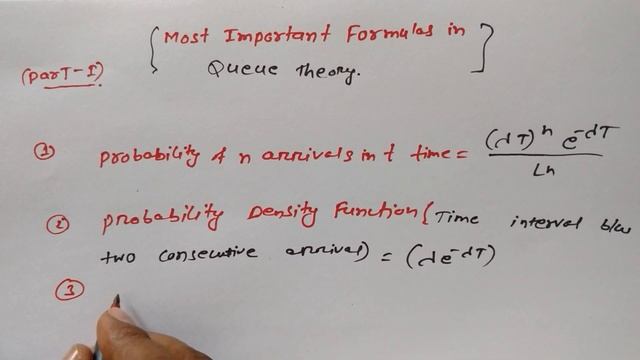 {Most Important Formulas in
(Part-I) Queue Theory.]
① probability of n arrivals in t time = (λT)ⁿ e^-λT / Ln
② probability Density Function (Time interval b/w
two consecutive arrival) = (λe^-λT)
③